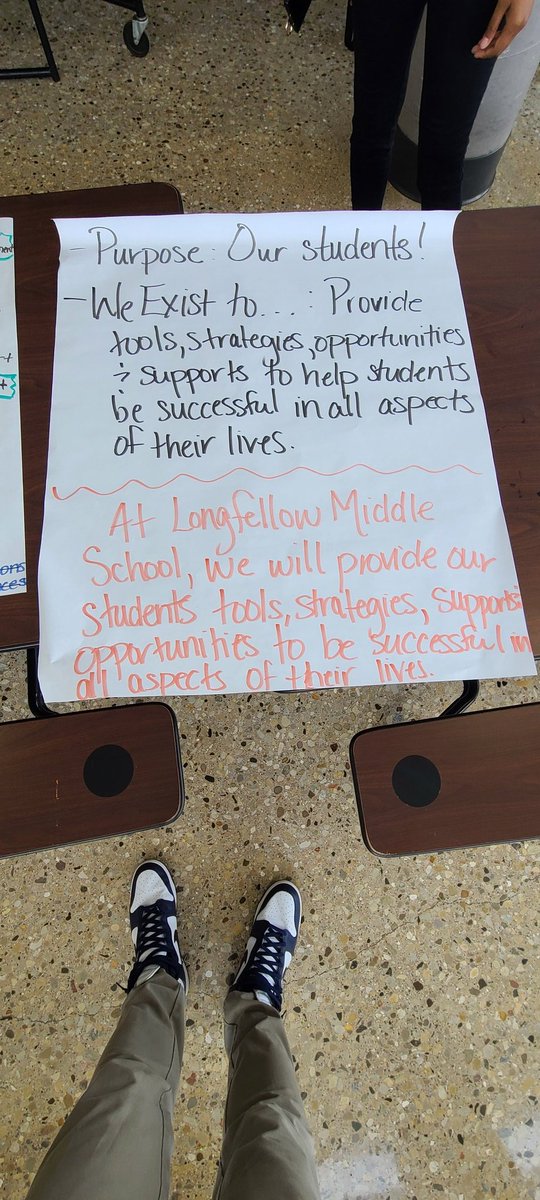 - Purpose: Our students!
- We Exist to...: Provide
tools, strategies, opportunities
& supports to help students
be successful in all aspects
of their lives.
At Longfellow Middle
School, we will provide our
students tools, strategies, supports &
opportunities to be successful in
all aspects of their lives.